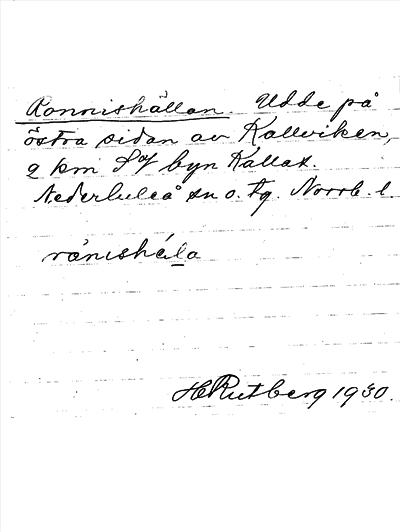 Ronnishällan. Udde på
östra sidan av Kallviken,
2 km S of byn Kallax.
Nederluleå sn o. tg. Norrb. l.
rånishä́la
H Rutberg 1930.